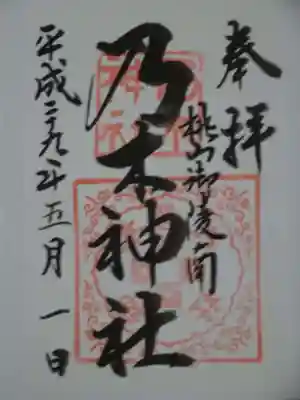 奉拝
桃山御陵南
乃木神社
平成二九年五月一日